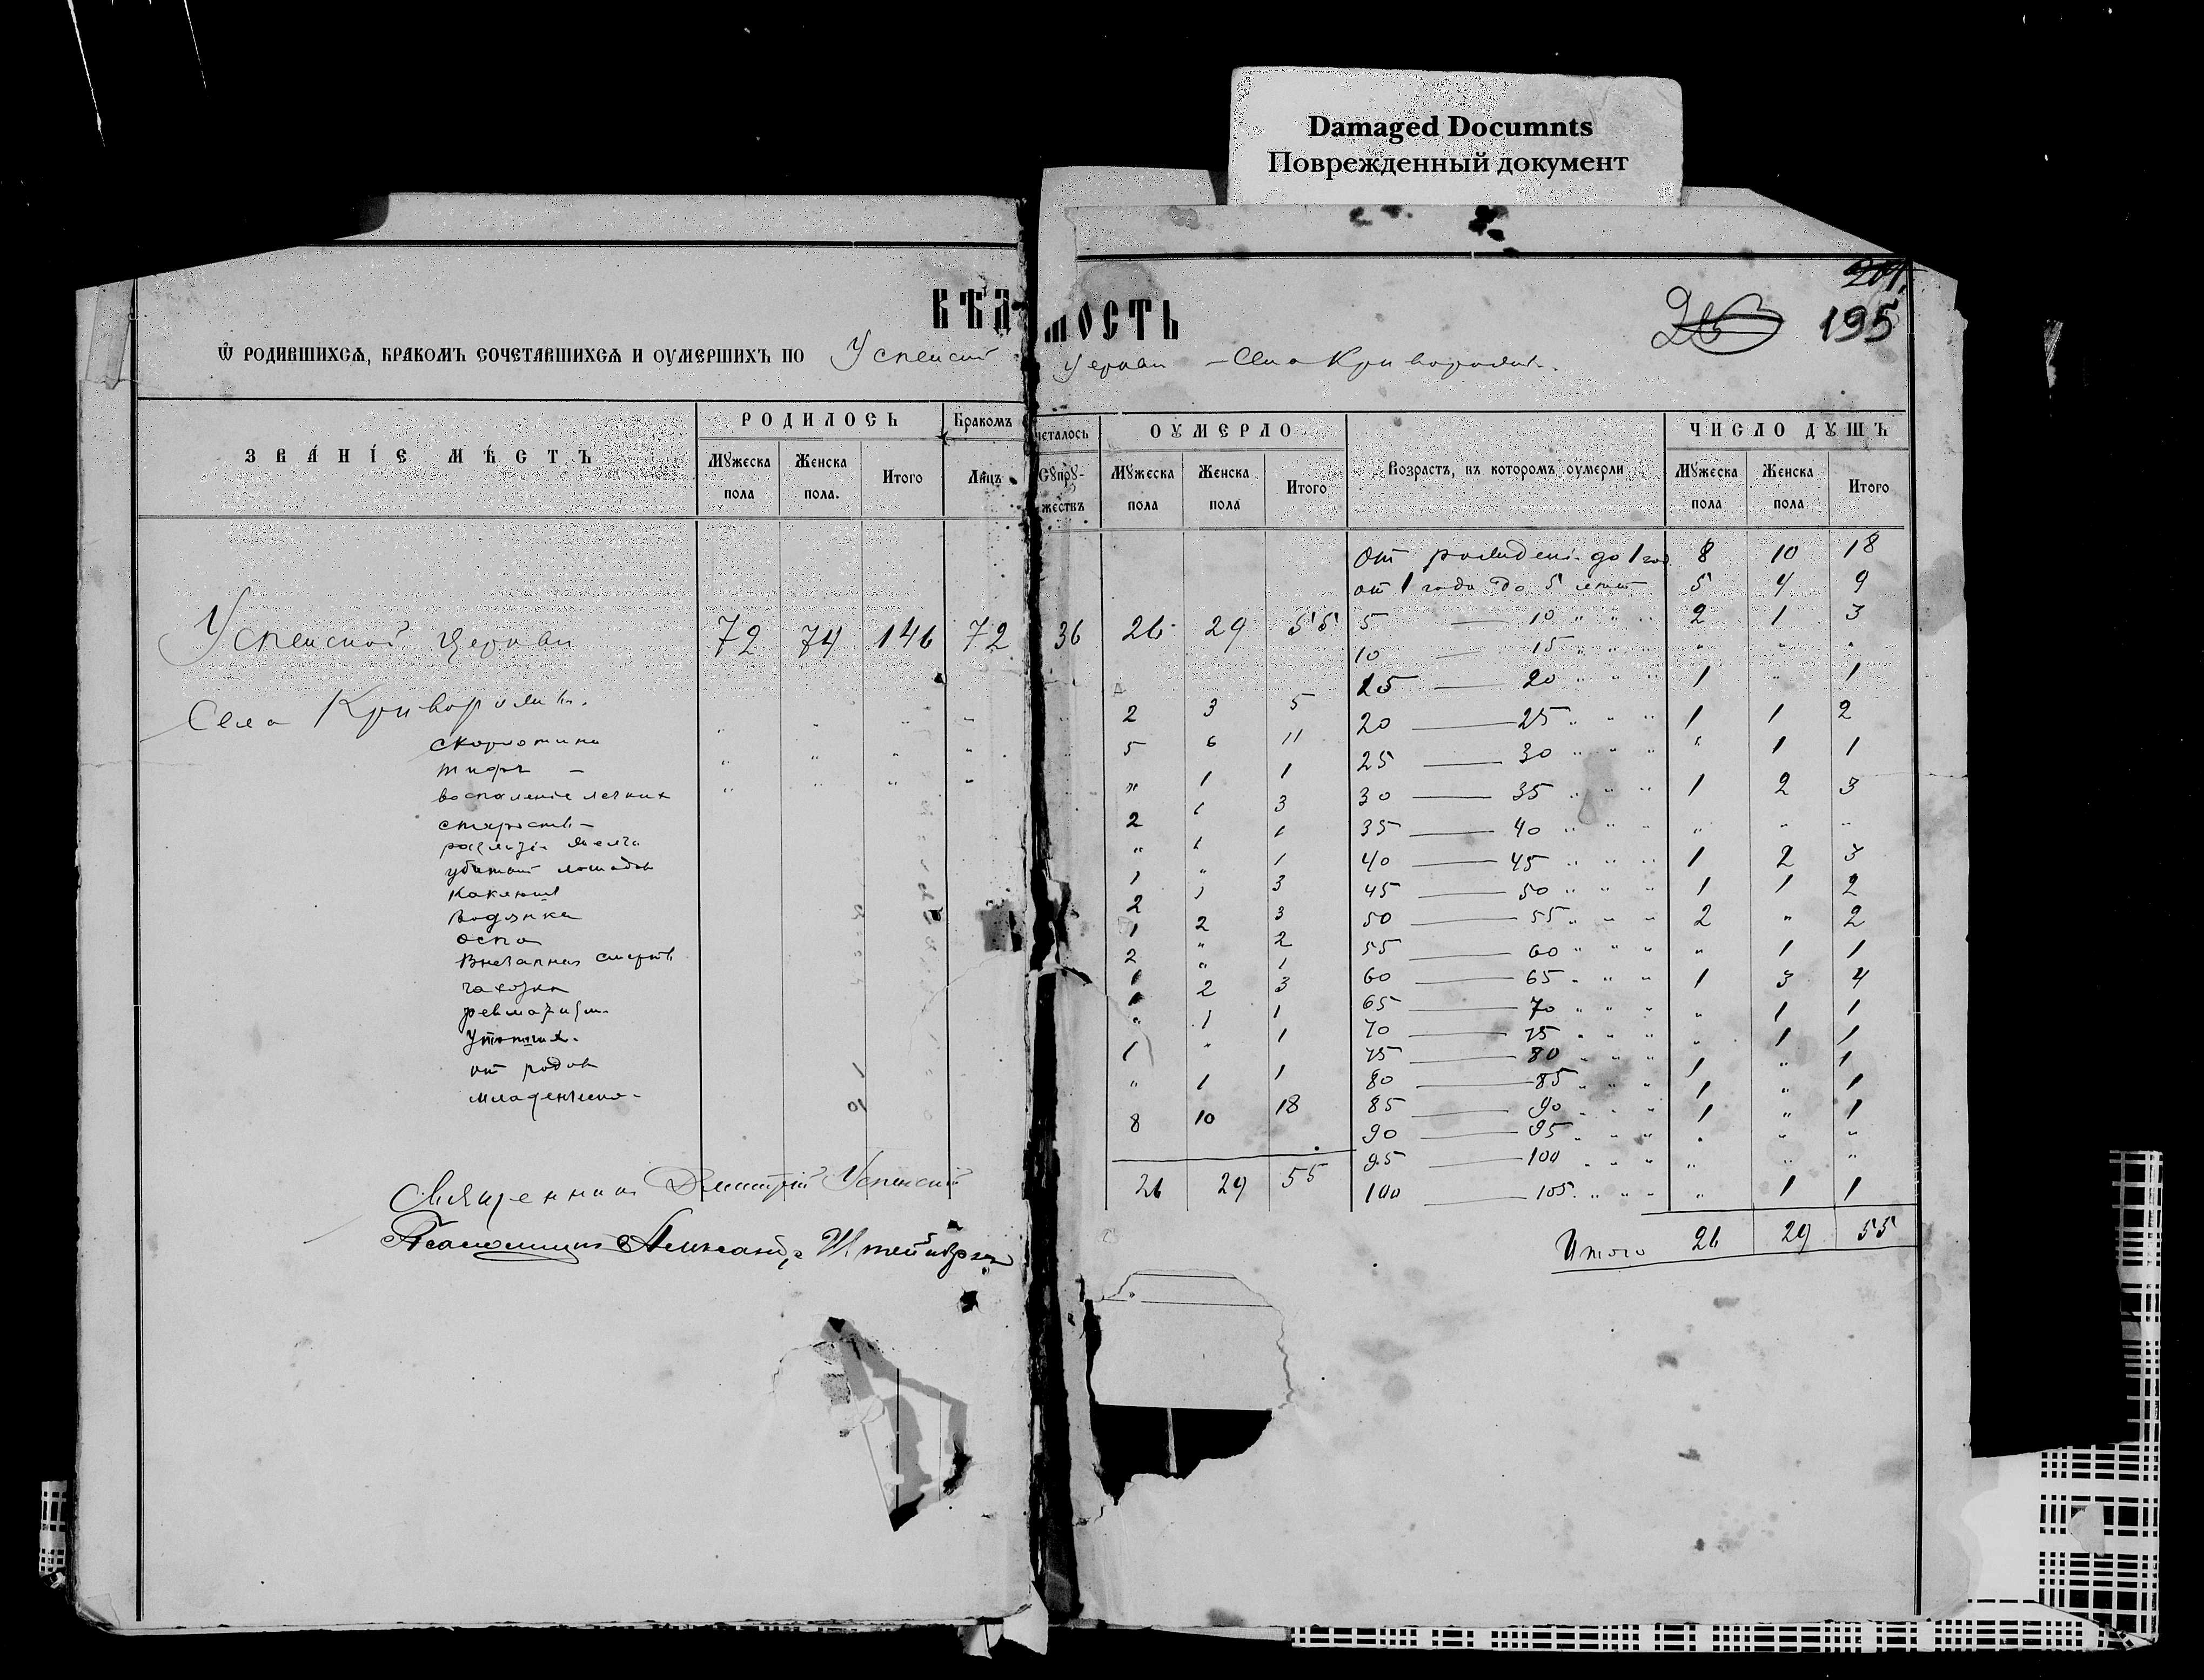 Damaged Documnts
Поврежденный документ
201.
195
ВѢДОМОСТЬ
Ѿ РОДИВШИХСѦ, БРАКОМЪ СОЧЕТАВШИХСѦ И ОУМЕРШИХЪ ПО Успенской Церкви – Села Криворожья.
ЗВА́НІЄ МѢ́СТЪ
РОДИЛОСЬ
Бракомъ
четалось
ОУМЕРЛО
Возрастъ, въ которомъ оумерли
ЧИСЛО ДꙊШЪ
Мꙋжеска пола
Женска пола.
Итого
Лицъ
Сꙋпрꙋ-жествъ
Мꙋжеска пола
Женска пола
Итого
Мꙋжеска пола
Женска пола
Итого
От рожденія до 1 год. 8 10 18
от 1 года до 5 летъ 5 4 9
Успенской Церкви 72 74 146 72 36 26 29 55
5 — 10 „ „ „ 2 1 3
10 — 15 „ „ „ „ „ „
Села Криворожья.
15 — 20 „ „ „ 1 „ 1
скарлотина „ „ „ „ „ 2 3 5
20 — 25 „ „ „ 1 1 2
тифъ – „ „ „ „ „ 5 6 11
25 — 30 „ „ „ „ 1 1
воспаленіе легкихъ „ „ „ „ „ 1 1
30 — 35 „ „ „ 1 2 3
старость – 2 1 3
35 — 40 „ „ „ „ „ „
„ 1 1
40 — 45 „ „ „ 1 2 3
убитый лошадью 1 „ 1
45 — 50 „ „ „ 1 1 2
Коклюшъ 2 1 3
50 — 55 „ „ „ 2 „ 2
Водянка 1 2 3
55 — 60 „ „ „ „ 1 1
оспа 2 „ 2
60 — 65 „ „ „ 1 3 4
Внезапная смерть 1 „ 1
65 — 70 „ „ „ „ 1 1
чахотка 1 2 3
70 — 75 „ „ „ „ 1 1
ревматизм. „ 1 1
75 — 80 „ „ „ 1 „ 1
1 „ 1
80 — 85 „ „ „ 1 „ 1
от родов „ 1 1
85 — 90 „ „ „ 1 „ 1
8 10 18
90 — 95 „ „ „ „ „ „
95 — 100 „ „ „ „ „ „
26 29 55
100 — 105. „ „ „ „ 1 1
Итого 26 29 55
Священникъ Дмитрій Успенскій
Псаломщикъ Александръ